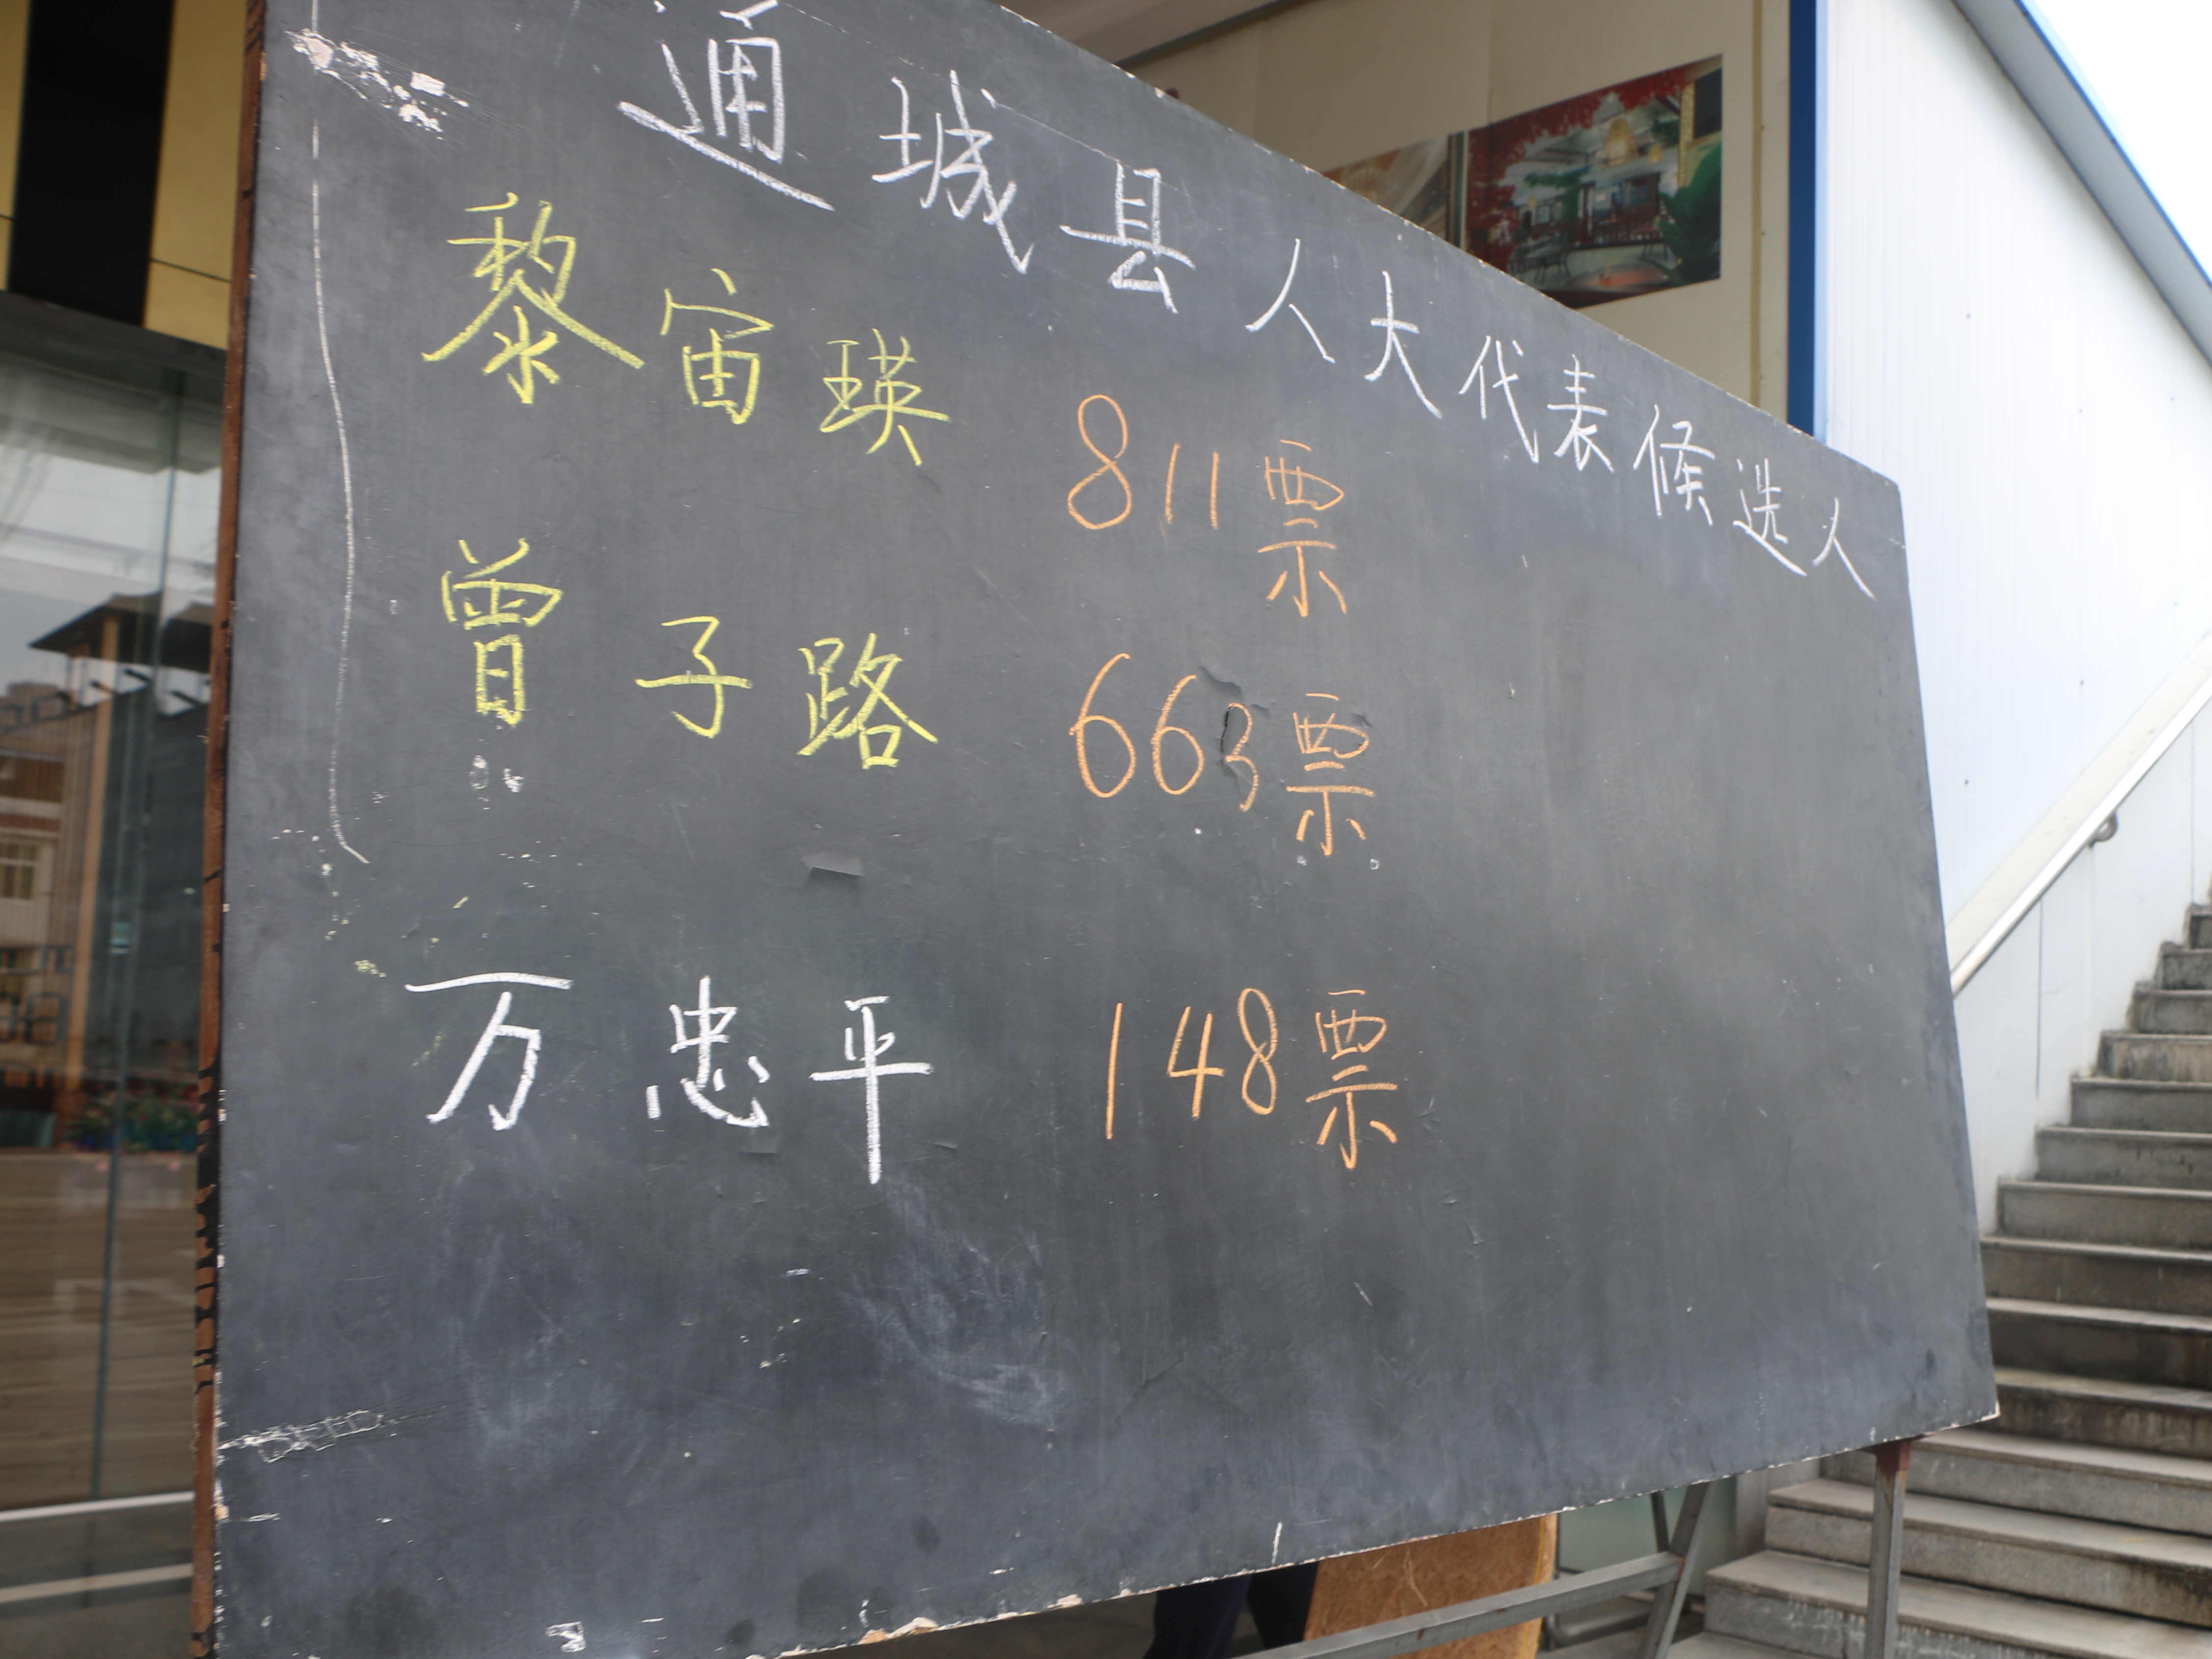 通城县人大代表候选人
黎宙瑛 811票
曾子路 663票
万忠平 148票